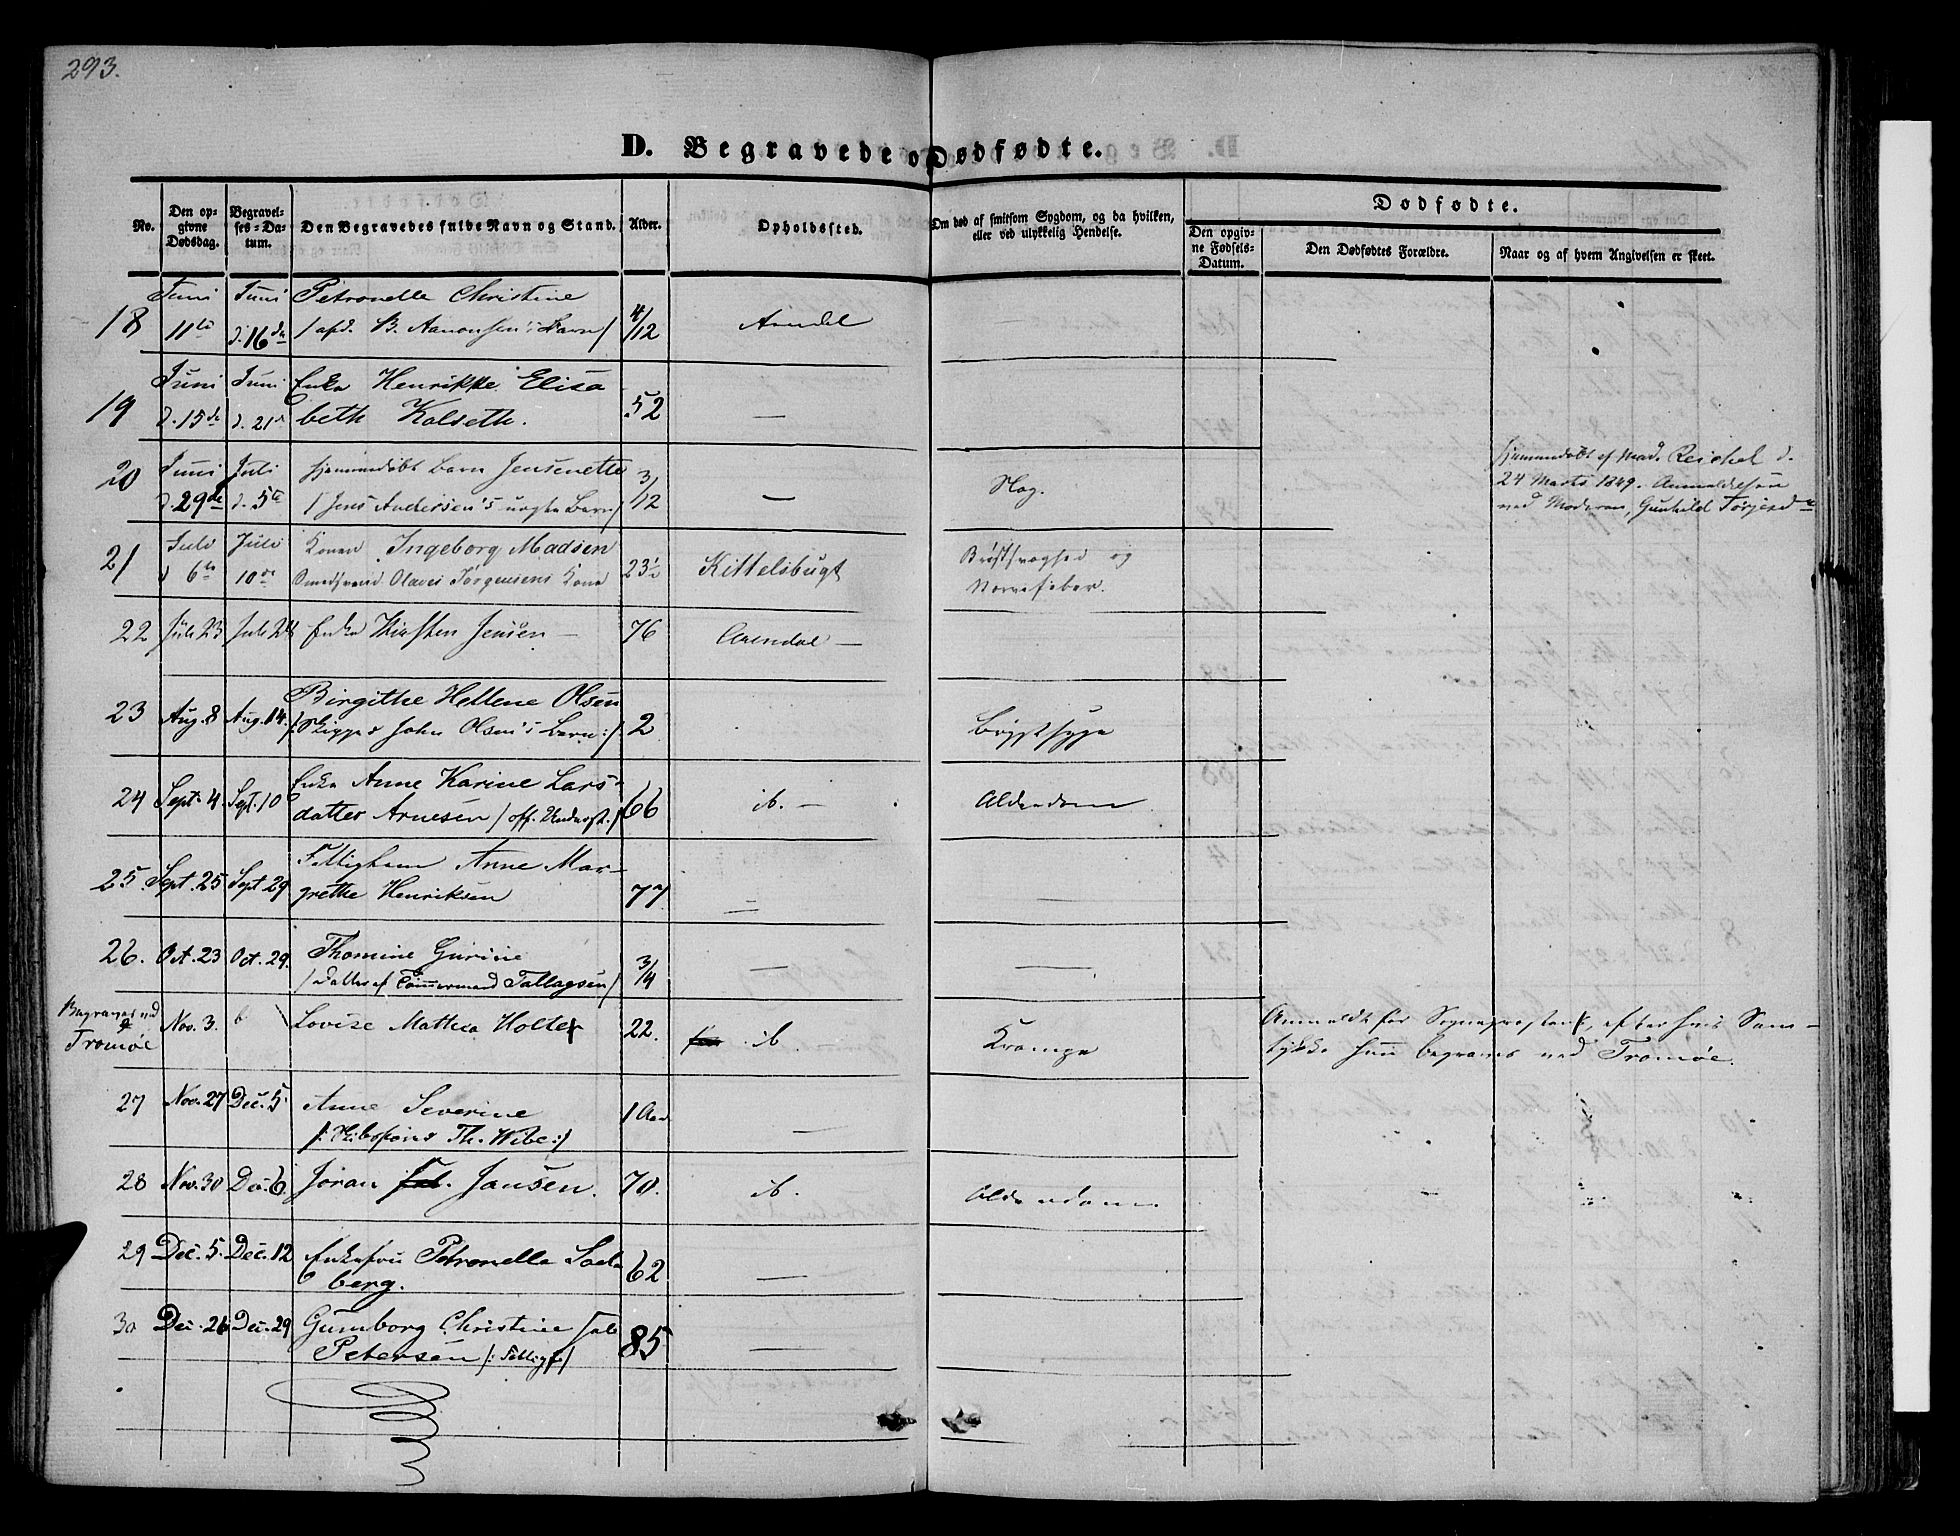 293.
D. Begravede o
Dødfødte.
No.
Den op-
givne
Dødsdag.
Begravel-
ses-Da-
tum.
Den Begravedes fulde Navn og Stand.
Alder.
Opholdssted.
Om død af smitsom Sygdom, og da hvilken,
eller ved ulykkelig Hendelse.
Dødfødte.
Den opgiv-
ne Fødsels-
Datum.
Den Dødfødtes Forældre.
Naar og af hvem Angivelsen er skeet.
18 Juni 11te Juni d. 16de Petronelle Christine
/ afd. B. Aanonsen's Barn / 4/12 Arendal
19 Juni d. 15de Juni d. 21d Enke Henrikke Elisa
beth Kalseth. 52 —
20 Juni d. 29de Juli d. 5te hjemmedøbt Barn Jensenette
/ Jens Andersen's uægte Barn / 3/12 — Slag.
hjemmedøbt af Mad. Reichel d.
24 Marts 1849. Anmeldelsen
ved Moderen, Gunhild Torjesd
21 Juli d 6te Juli 10de Konen Ingeborg Madsen
Smedsvend Olaves Jørgensens Kone 23½ Kittelsbugt Brøstsvaghed og
Nervefeber.
22 Juli 23 Juli 28 Enke Kirsten Jensen — 76 Arendal —
23 Aug. 8 Aug. 14. Birgithe Hellene Olsen
/: John Olsen's Barn :/ 2 Brystsyge
24 Sept. 4. Sept. 10 Enke Anne Karine Lars-
datter Arnesen / off. Underst. / 66 ib. — Alderdom
25. Sept. 25 Sept 29 Fattiglem Anne Mar-
grethe Henriksen 77 —
26. Oct. 23 Oct. 29. Thomine Gurine
/ Datter af Tømmermand Tallagsen / 3/4 — —
Begraves ved
Tromøe Nov. 3. Lovise Mathea Holte 22. ib. Krampe
Anmeldt for Sognepresten, efter hvis Sam-
tykke hun begraves ved Tromøe.
27 Nov. 27 Dec. 5 Anne Severine
/: Th. Wibe :/ 1 Aar —
28 Nov. 30 Dec. 6. Jøran Jansen. 70. ib. Alderdom.
29 Dec. 5. Dec. 12 Enkefru Petronelle
berg. 62 —
30 Dec. 26 Dec. 29 Gumborg Christine
Petersen /: Fattig / 85 —